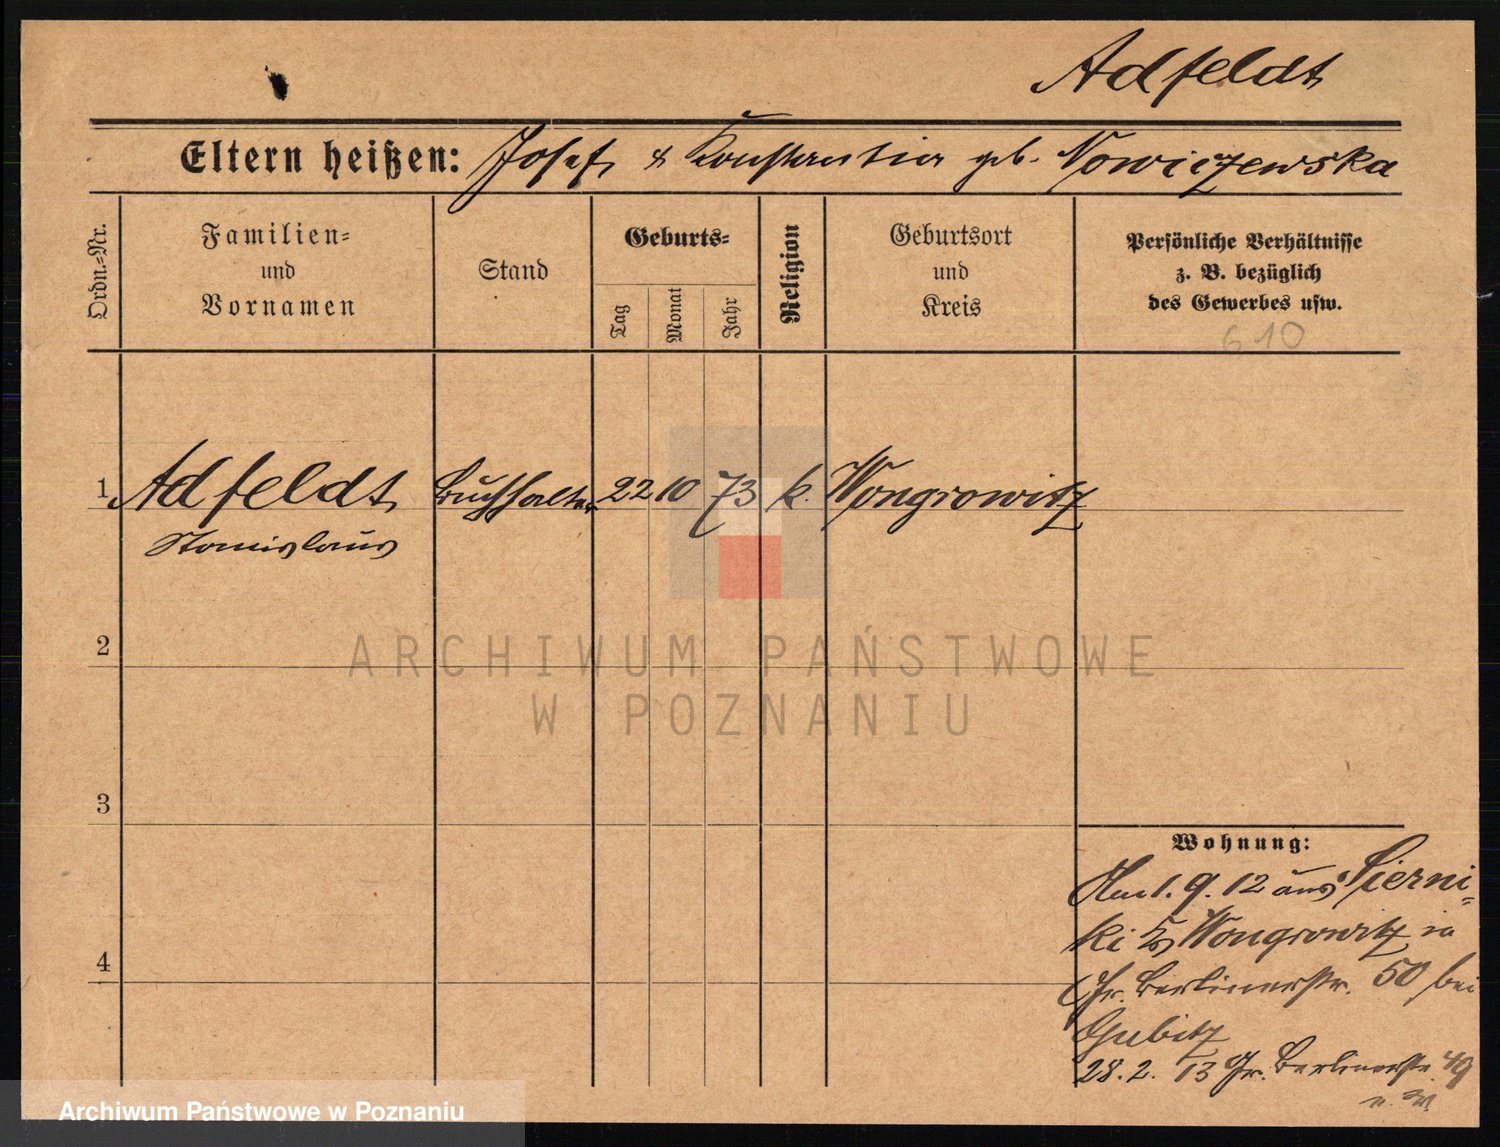 Adfeldt
Eltern heißen: Josef & Konstantia geb. Nowiczewska
Ordn.-Nr.
Familien-
und
Vornamen
Stand
Geburts-
Tag
Monat
Jahr
Religion
Geburtsort
und
Kreis
Persönliche Verhältnisse
z. B. bezüglich
des Gewerbes usw.
610
1 Adfeldt Buchhalter 22 10 73 k. Wongrowitz
Stanislaus
2
3
4
Wohnung:
Am 1. 9. 12 aus Sierni-
ki Wongrowitz in
Gr. Berlinerstr. 50 bei
Gubitz
28. 2. 13 Gr. Berlinerstr. 49
ARCHIWUM PAŃSTWOWE
W POZNANIU
Archiwum Państwowe w Poznaniu